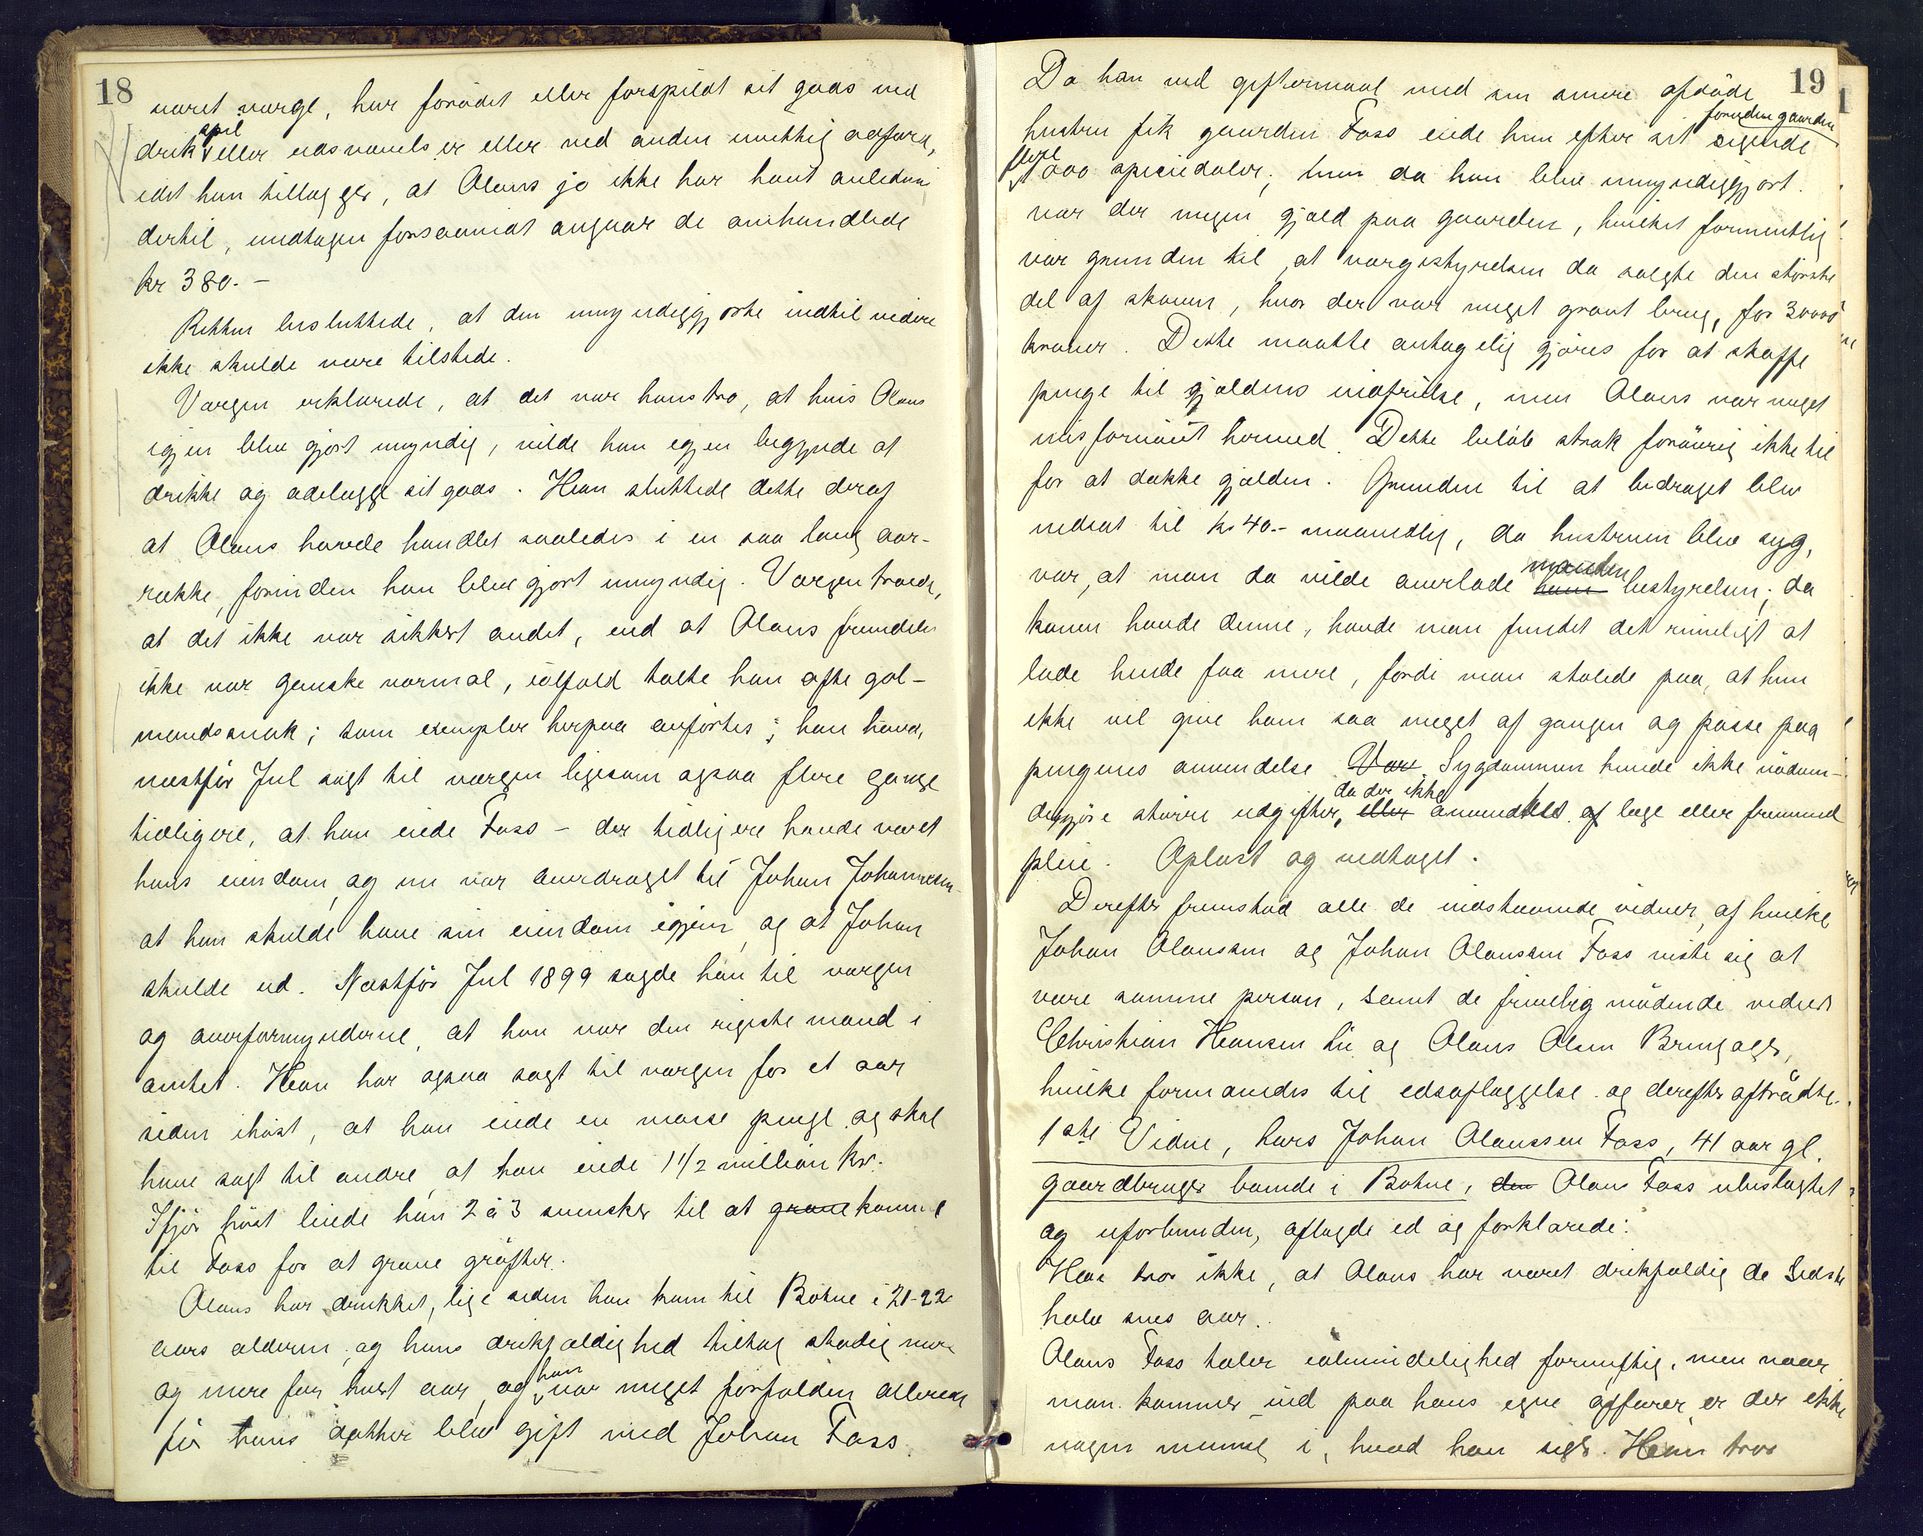 18
været værge, har forødet eller forspildt sit gods ved
drik, spil eller udsvævelser eller ved anden unyttig adfærd,
idet han tillægger, at Olaus jo ikke har havt anledning
dertil, undtagen forsaavidt angaar de omhandlede
kr 380.-
Retten besluttede, at den umyndiggjorte indtil videre
ikke skulde være tilstede.
Værgen erklærede, at det var hans tro, at hvis Olaus
igjen blev gjort myndig, vilde han igjen begynde at
drikke og ødelægge sit gods. Han sluttede dette deraf
at Olaus havde handlet saaledes i en saa lang aar-
række, forinden han blev gjort umyndig. Værgen troede,
at det ikke var sikkert andet, end at Olaus fremdeles
ikke var ganske normal, ialfald talte han ofte gal-
mandssnak; som exempler herpaa anførtes; han havde
næstfør Jul sagt til værgen ligesom ogsaa flere gange
tidligere, at han eiede Foss – der tidligere havde været
hans eiendom, og nu var overdraget til Johan Johannesen
at han skulde have sin eiendom igjen, og at Johan
skulde ud. Næstfør Jul 1899 sagde han til værgen
og overformynderne, at han var den rigeste mand i
amtet. Han har ogsaa sagt til værgen for et aar
siden ihøst, at han eiede en masse penge og skal
have sagt til andre, at han eiede 1 1/2 million kr.
Ifjor høst leiede han 2 à 3 svensker til at grave komme
til Foss for at grave grøfter.
Olaus har drukket, lige siden han kom til Botne i 21-22
aars alderen, og hans drikfældighed tiltog stadig mere
og mere for hvert aar, og han var meget forfalden allerede
før hans datter blev gift med Johan Foss.
19
Da han ved giftermaal med sin senere afdøde
hustru fik gaarden Foss eiede hun efter sit sigende foruden gaarden
flere 1000 speciedaler, men da han blev umyndiggjort.
var der megen gjæld paa gaarden, hvilket formentlig
var grunden til, at værgestyrelsen da solgte den største
del af skoven, hvor der var meget grovt brug, for 30000
kroner. Dette maatte antagelig gjøres for at skaffe
penge til gjældens indfrielse, men Olaus var meget
misfornøiet hermed. Dette beløb strak forøvrig ikke til
for at dække gjælden. Grunden til at bidraget blev
nedsat til kr 40.- maanedlig, da hustruen blev syg,
var, at man da vilde overlade ham manden bestyrelsen; da
konen havde denne, havde man fundet det rimeligt at
lade hende faa mere, fordi man stolede paa, at hun
ikke vil give ham saa meget af gangen og passe paa
pengenes anvendelse. Var Sygdommen hunde ikke nødven-
diggjøre større udgifter, eller da der ikke anvendtes af læge eller fremmed
pleie. Oplæst og vedtaget.
Derefter fremstod alle de indstævnede vidner, af hvilke
Johan Olaussen og Johan Olaussen Foss viste sig at
være samme person, samt de frivillig mødende vidner
Christian Hansen Lie og Olaus Olsen Bringager,
hvilke formanedes til edsaflæggelse og derefter aftraadte.
1ste Vidne, hars Johan Olaussen Foss, 41 aar gl.
gaardbruger boende i Botne, den Olaus Foss ubeslægtet
og uforbunden, aflagde ed og forklarede:
Han tror ikke, at Olaus har været drikfældig de sidste
halv snes aar.
Olaus Foss taler ialmindelighed fornuftig, men naar
man kommer ind paa hans egne affærer, er der ikke
nogen mening i, hvad han siger. Han tror